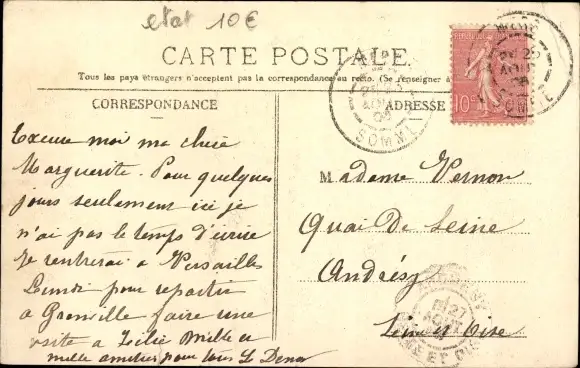 etat 10€
CARTE POSTALE
Tous les pays étrangers n'acceptent pas la correspondance au recto. (Se renseigner à
CORRESPONDANCE
Excuse moi ma chère
Marguerite. Pour quelques
jours seulement ici je
n'ai pas le temps d'écrire
Je rentrerai à Versailles
Lundi pour repartir
à Granville faire une
visite à
mille amitiés pour tous
ADRESSE
REPUBLIQUE
10
25
AOUT
SOMME
SOMME
Madame Vernon
Quai De Seine
Andrésy
Seine et Oise
27
AOUT